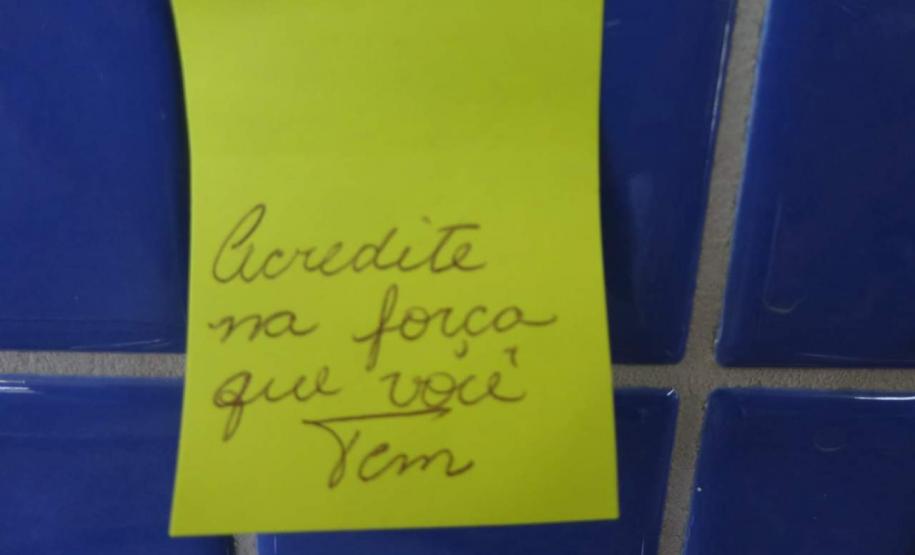 Acredite
na força
que você
Tem